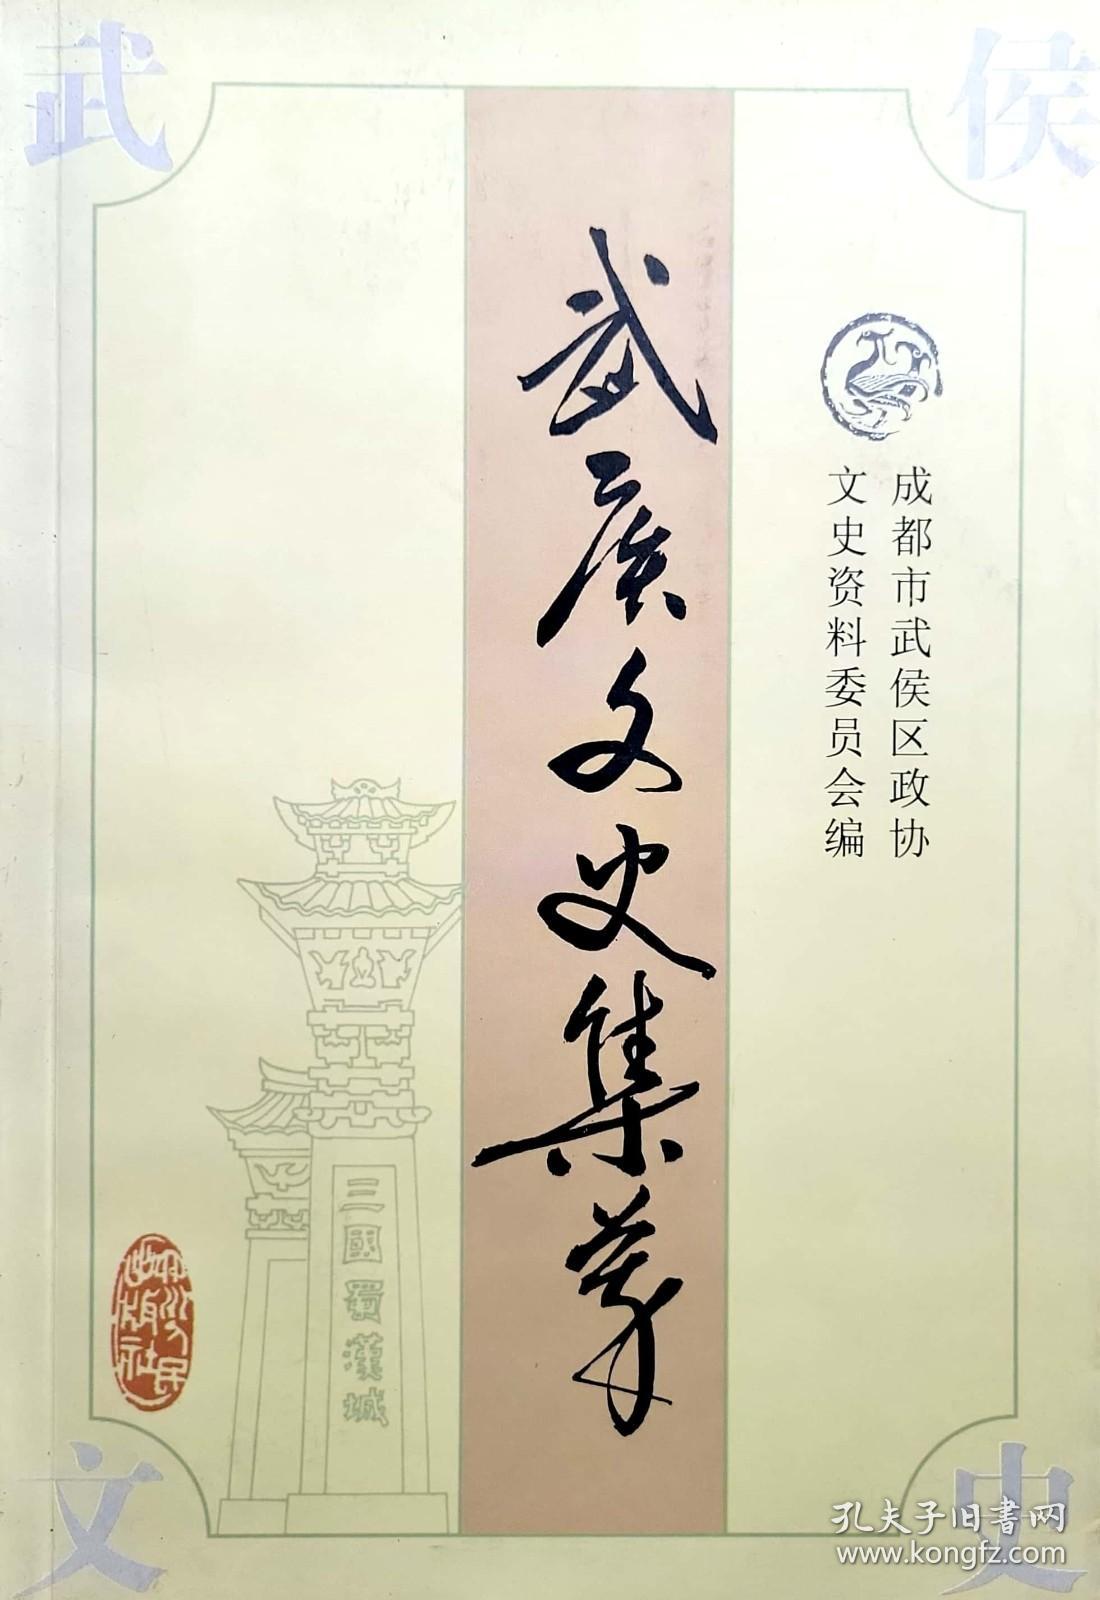 武
侯
武侯文史集萃
成都市武侯区政协
文史资料委员会编
三國蜀漢城
四川人民
出版社
文
史
孔夫子旧书网
www.kongfz.com